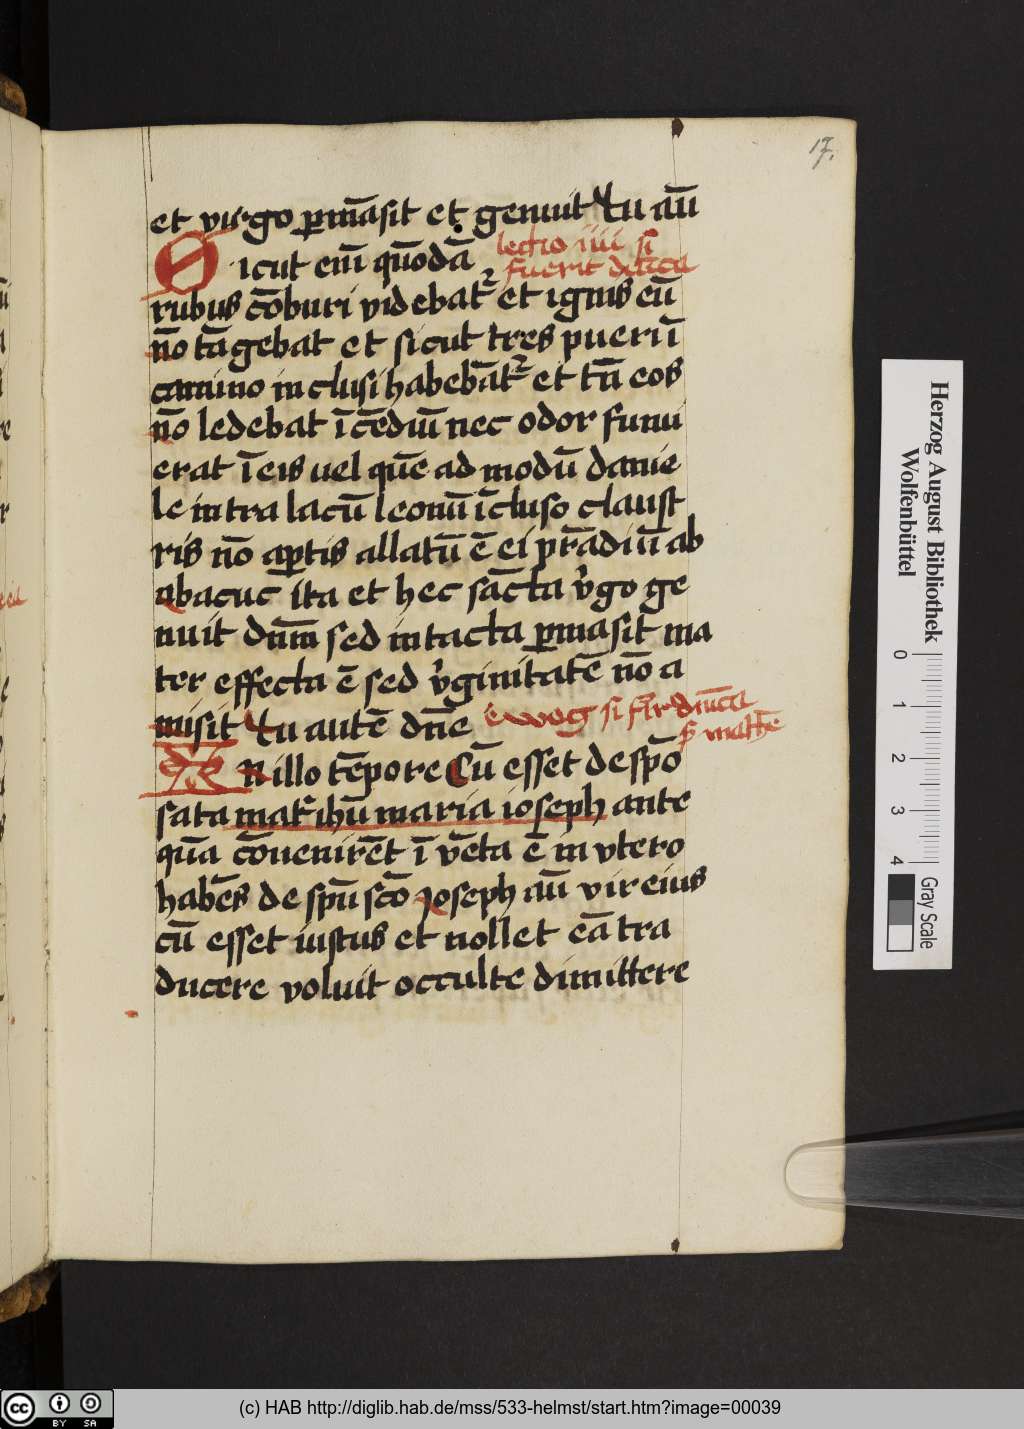 17.
et virgo ꝑmāsit et genuit tu aū
Sicut eni̅ quo̅da̅ lectio iiii si
fuerit dn̄ica
rubus co̅buri videbat᷑ et ignis eu̅
no̅ ta̅gebat et sicut tres pueri i̅
camino inclusi habeba̅t᷑ et tn̅ eos
no̅ ledebat i̅ce̅diu̅ nec odor fumi
erat i̅ eis uel que̅ ad modu̅ danie
le intra lacu̅ leonu̅ i̅cluso claust
ris no̅ aꝑtis allatu̅ e̅ ei pra̅diu̅ ab
abacuc ita et hec sa̅cta v̓go ge
nuit dn̅m sed intacta ꝑmasit ma
ter effecta e̅ sed v̓ginitate̅ no̅ a
misit tu aute̅ dn̅e ewāg si fu̓it dn̄ica
s̄ mathe̅
In illo te̅pore Cu̅ esset despo̅
sata mat᷑ ihu̅ maria ioseph ante
qua̅ co̅uenire̅t i̅ve̅ta e̅ in vtero
habe̅s de spu̅ sco̅ Joseph au̅ vir eius
cu̅ esset iustus et nollet ea̅ tra
ducere voluit occulte dimittere
Herzog August Bibliothek
Wolfenbüttel
0 1 2 3 4
Gray Scale
cc BY SA
(c) HAB http://diglib.hab.de/mss/533-helmst/start.htm?image=00039